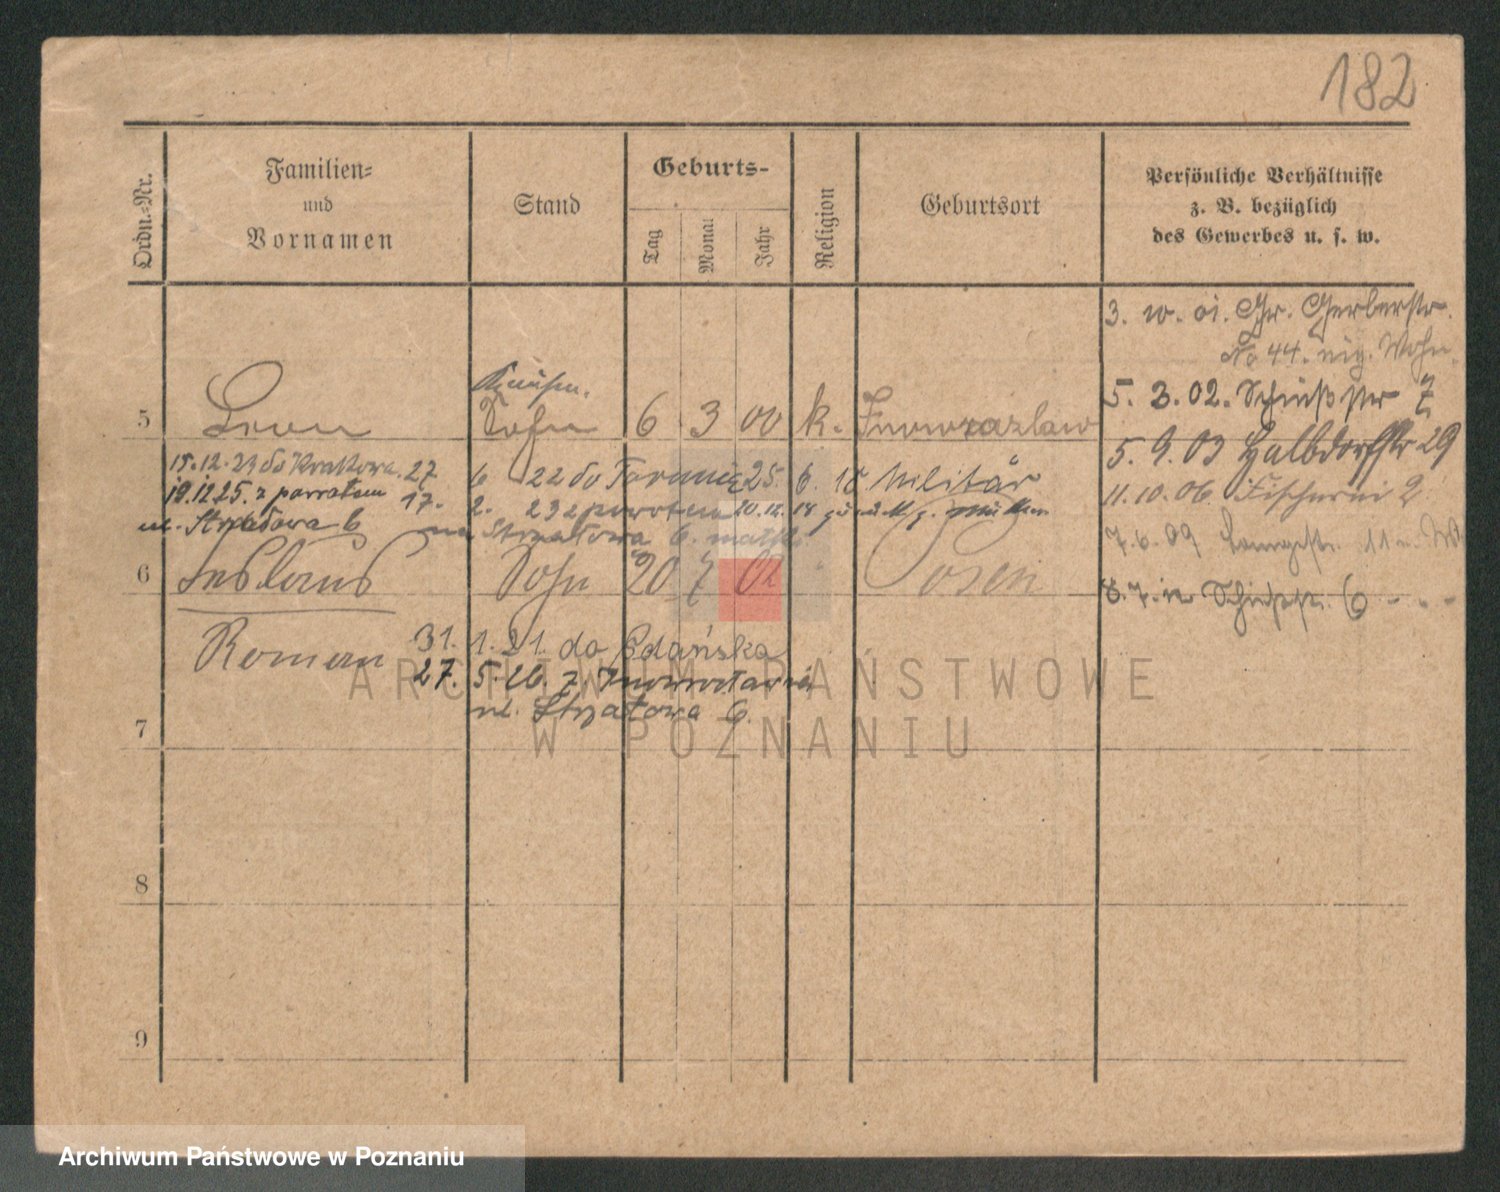 182
Ordn.-Nr.
Familien-
und
Vornamen
Stand
Geburts-
Tag
Monat
Jahr
Religion
Geburtsort
Persönliche Verhältnisse
z. B. bezüglich
des Gewerbes u. s. w.
3. 10. 01. Gr. Gerberstr.
No 44. Wohn.
5. 3. 02. Schießstr 7
5 Leon Sohn 6 3 00 k. Inowrazlaw
5. 9. 03 Halbdorfstr 29
15.12.24 do Krakowa. 27 6 22 do Torunia 25. 6. 18 Militär
11. 10. 06 Fischerei 2.
18.12.25. z powrotem 17. 2. 23 z powrotem 20.12.18
ul. Strzałowa 6 na Strzałowa 6.
7. 6. 09 Langestr. 11
6 Leslaus Sohn 20 7 02 Posen
8. 7. Schießstr. 6
Roman 31. 1. 21. do Gdańska
27. 5. 26. z Inowrocławia
ul. Strzałowa 6.
7
8
9
ARCHIWUM PAŃSTWOWE
W POZNANIU
Archiwum Państwowe w Poznaniu